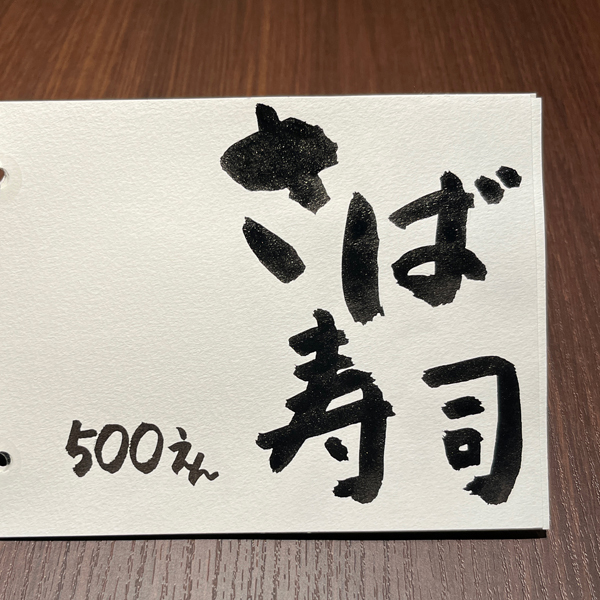 さば
寿司
500えん